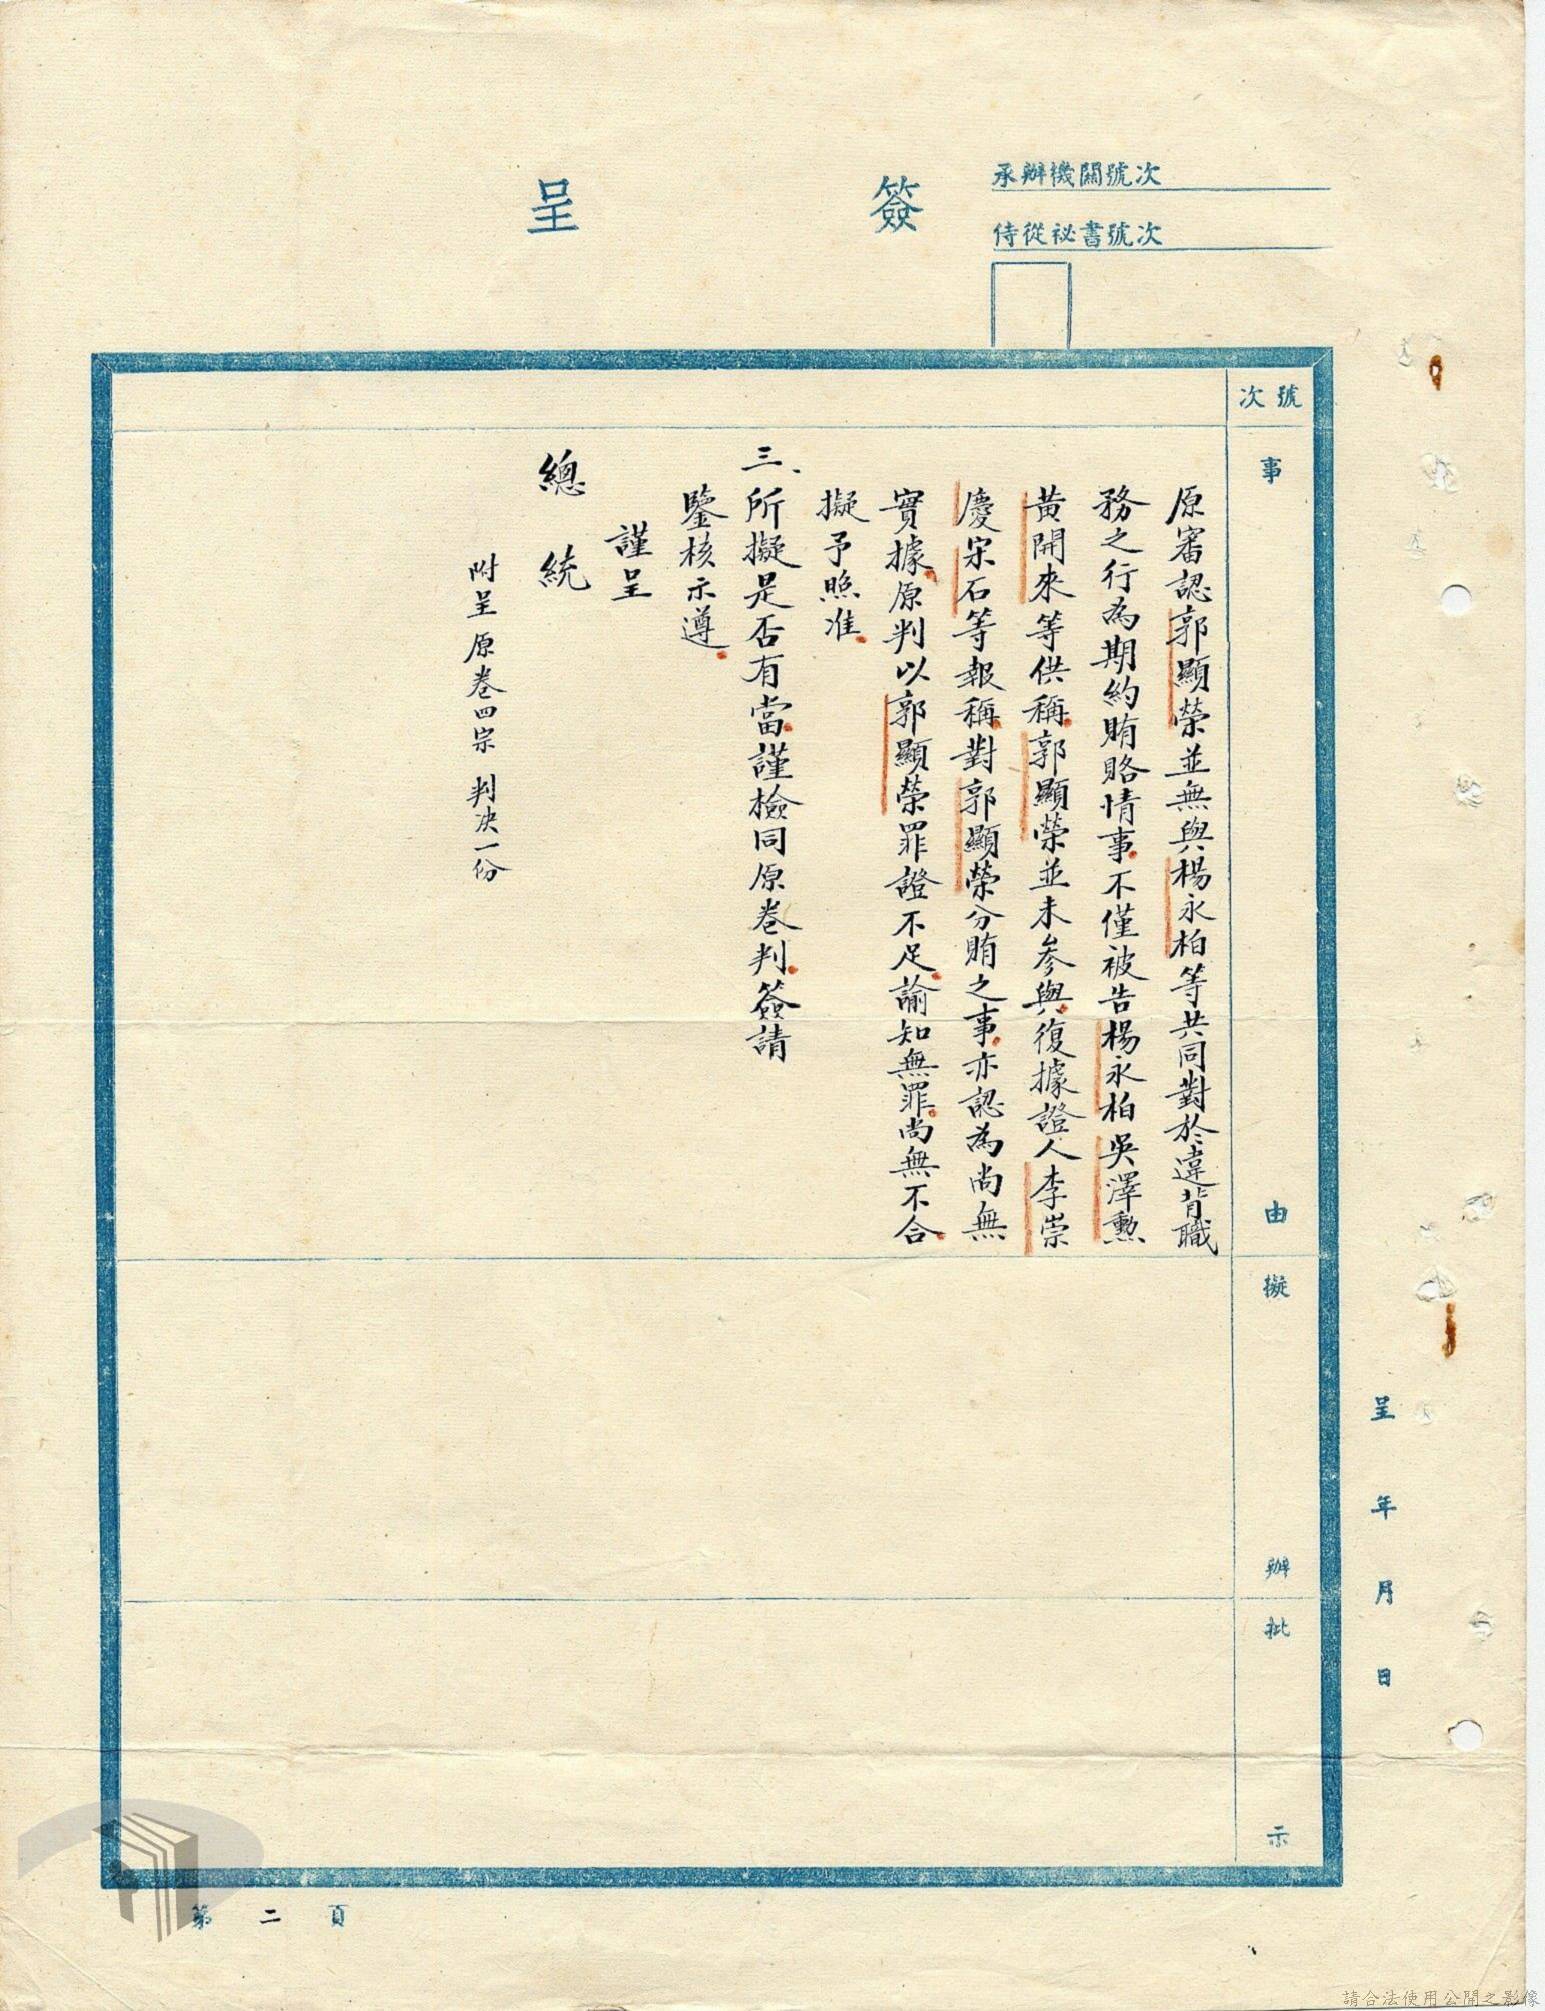 承辦機關號次
侍從祕書號次
簽呈
號次
事由
擬辦
批示
呈 年 月 日
原審認郭顯榮並無與楊永柏等共同對於違背職
務之行為期約賄賂情事不僅被告楊永柏吳澤勲
黃開來等供稱郭顯榮並未參與復據證人李崇
慶宋石等報稱對郭顯榮分賄之事亦認為尚無
實據原判以郭顯榮罪證不足諭知無罪尚無不合
擬予照准
三、所擬是否有當謹檢同原卷判簽請
鑒核示遵
謹呈
總統
附呈原卷四宗 判決一份
第二頁
請合法使用公開之影像